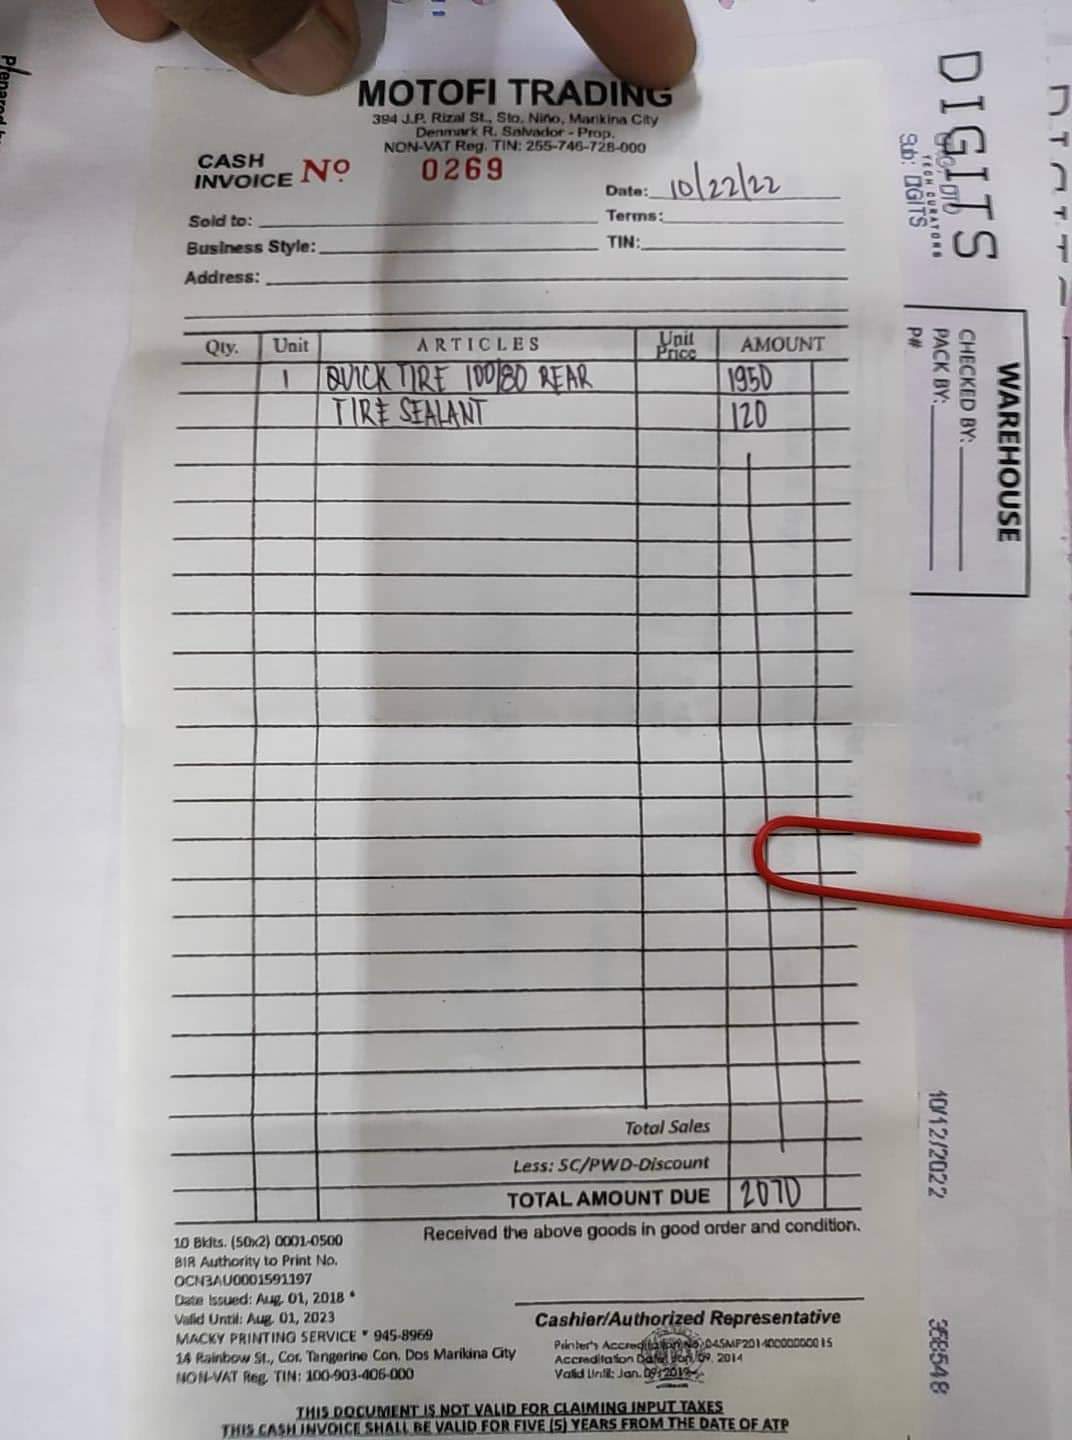 MOTOFI TRADING
394 J.P. Rizal St., Sto. Niño, Marikina City
Denmark R. Salvador - Prop.
NON-VAT Reg. TIN: 255-746-728-000
CASH INVOICE Nº 0269
Date: 10/22/22
Sold to:
Terms:
Business Style:
TIN:
Address:
Qty. Unit ARTICLES Unit Price AMOUNT
1 QUICK TIRE 100/80 REAR 1950
TIRE SEALANT 120
Total Sales
Less: SC/PWD-Discount
TOTAL AMOUNT DUE 2070
Received the above goods in good order and condition.
10 Bklts. (50x2) 0001-0500
BIR Authority to Print No.
OCN3AU0001591197
Date Issued: Aug. 01, 2018
Valid Until: Aug. 01, 2023
MACKY PRINTING SERVICE * 945-8969
14 Rainbow St., Cor. Tangerine Con. Dos Marikina City
NON-VAT Reg. TIN: 100-903-406-000
Cashier/Authorized Representative
Printer's Accreditation
Accreditation Jan. 09, 2014
Valid Until: Jan.
THIS DOCUMENT IS NOT VALID FOR CLAIMING INPUT TAXES
THIS CASH INVOICE SHALL BE VALID FOR FIVE (5) YEARS FROM THE DATE OF ATP
DIGITS
TECH CURATORS
Sub: DIGITS
WAREHOUSE
CHECKED BY:
PACK BY:
P#
10/12/2022
358548